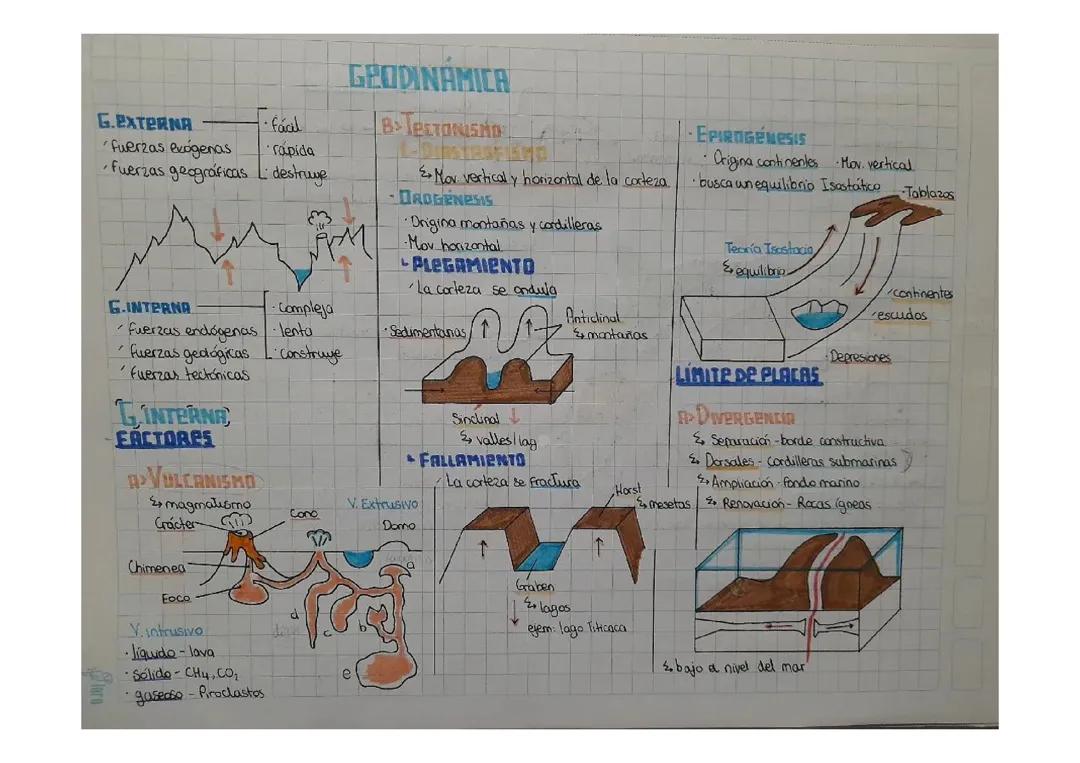 GEODINÁMICA
G.EXTERNA
fuerzas exógenas
fuerzas geográficas
· fácil
· rápida
· destruye
G.INTERNA
fuerzas endógenas
fuerzas geológicas
fuerzas tectónicas
· compleja
· lenta
· construye
G.INTERNA,
FACTORES
A> VULCANISMO
magmatismo
Cráter
Cono
V. Extrusivo
Domo
Chimenea
Foco
a
b
c
d
e
V. intrusivo
· líquido - lava
· sólido - CH4, CO2
· gaseoso - Piroclastos
B> TECTONISMO
1.- DIASTROFISMO
Mov. vertical y horizontal de la corteza
· OROGÉNESIS
· Origina montañas y cordilleras
· Mov. horizontal
PLEGAMIENTO
La corteza se ondula
· Sedimentarias
Anticlinal
montañas
Sinclinal
valles/lag
FALLAMIENTO
La corteza se fractura
Horst
mesetas
Graben
lagos
ejem: lago Titicaca
· EPIROGÉNESIS
· Origina continentes · Mov. vertical
· busca un equilibrio Isostático
· Tablazos
Teoría Isostacia
equilibrio
continentes
escudos
· Depresiones
LÍMITE DE PLACAS
A> DIVERGENCIA
Separación - borde constructiva
Dorsales - Cordilleras submarinas
Ampliación - Fondo marino
Renovación - Rocas ígneas
bajo el nivel del mar